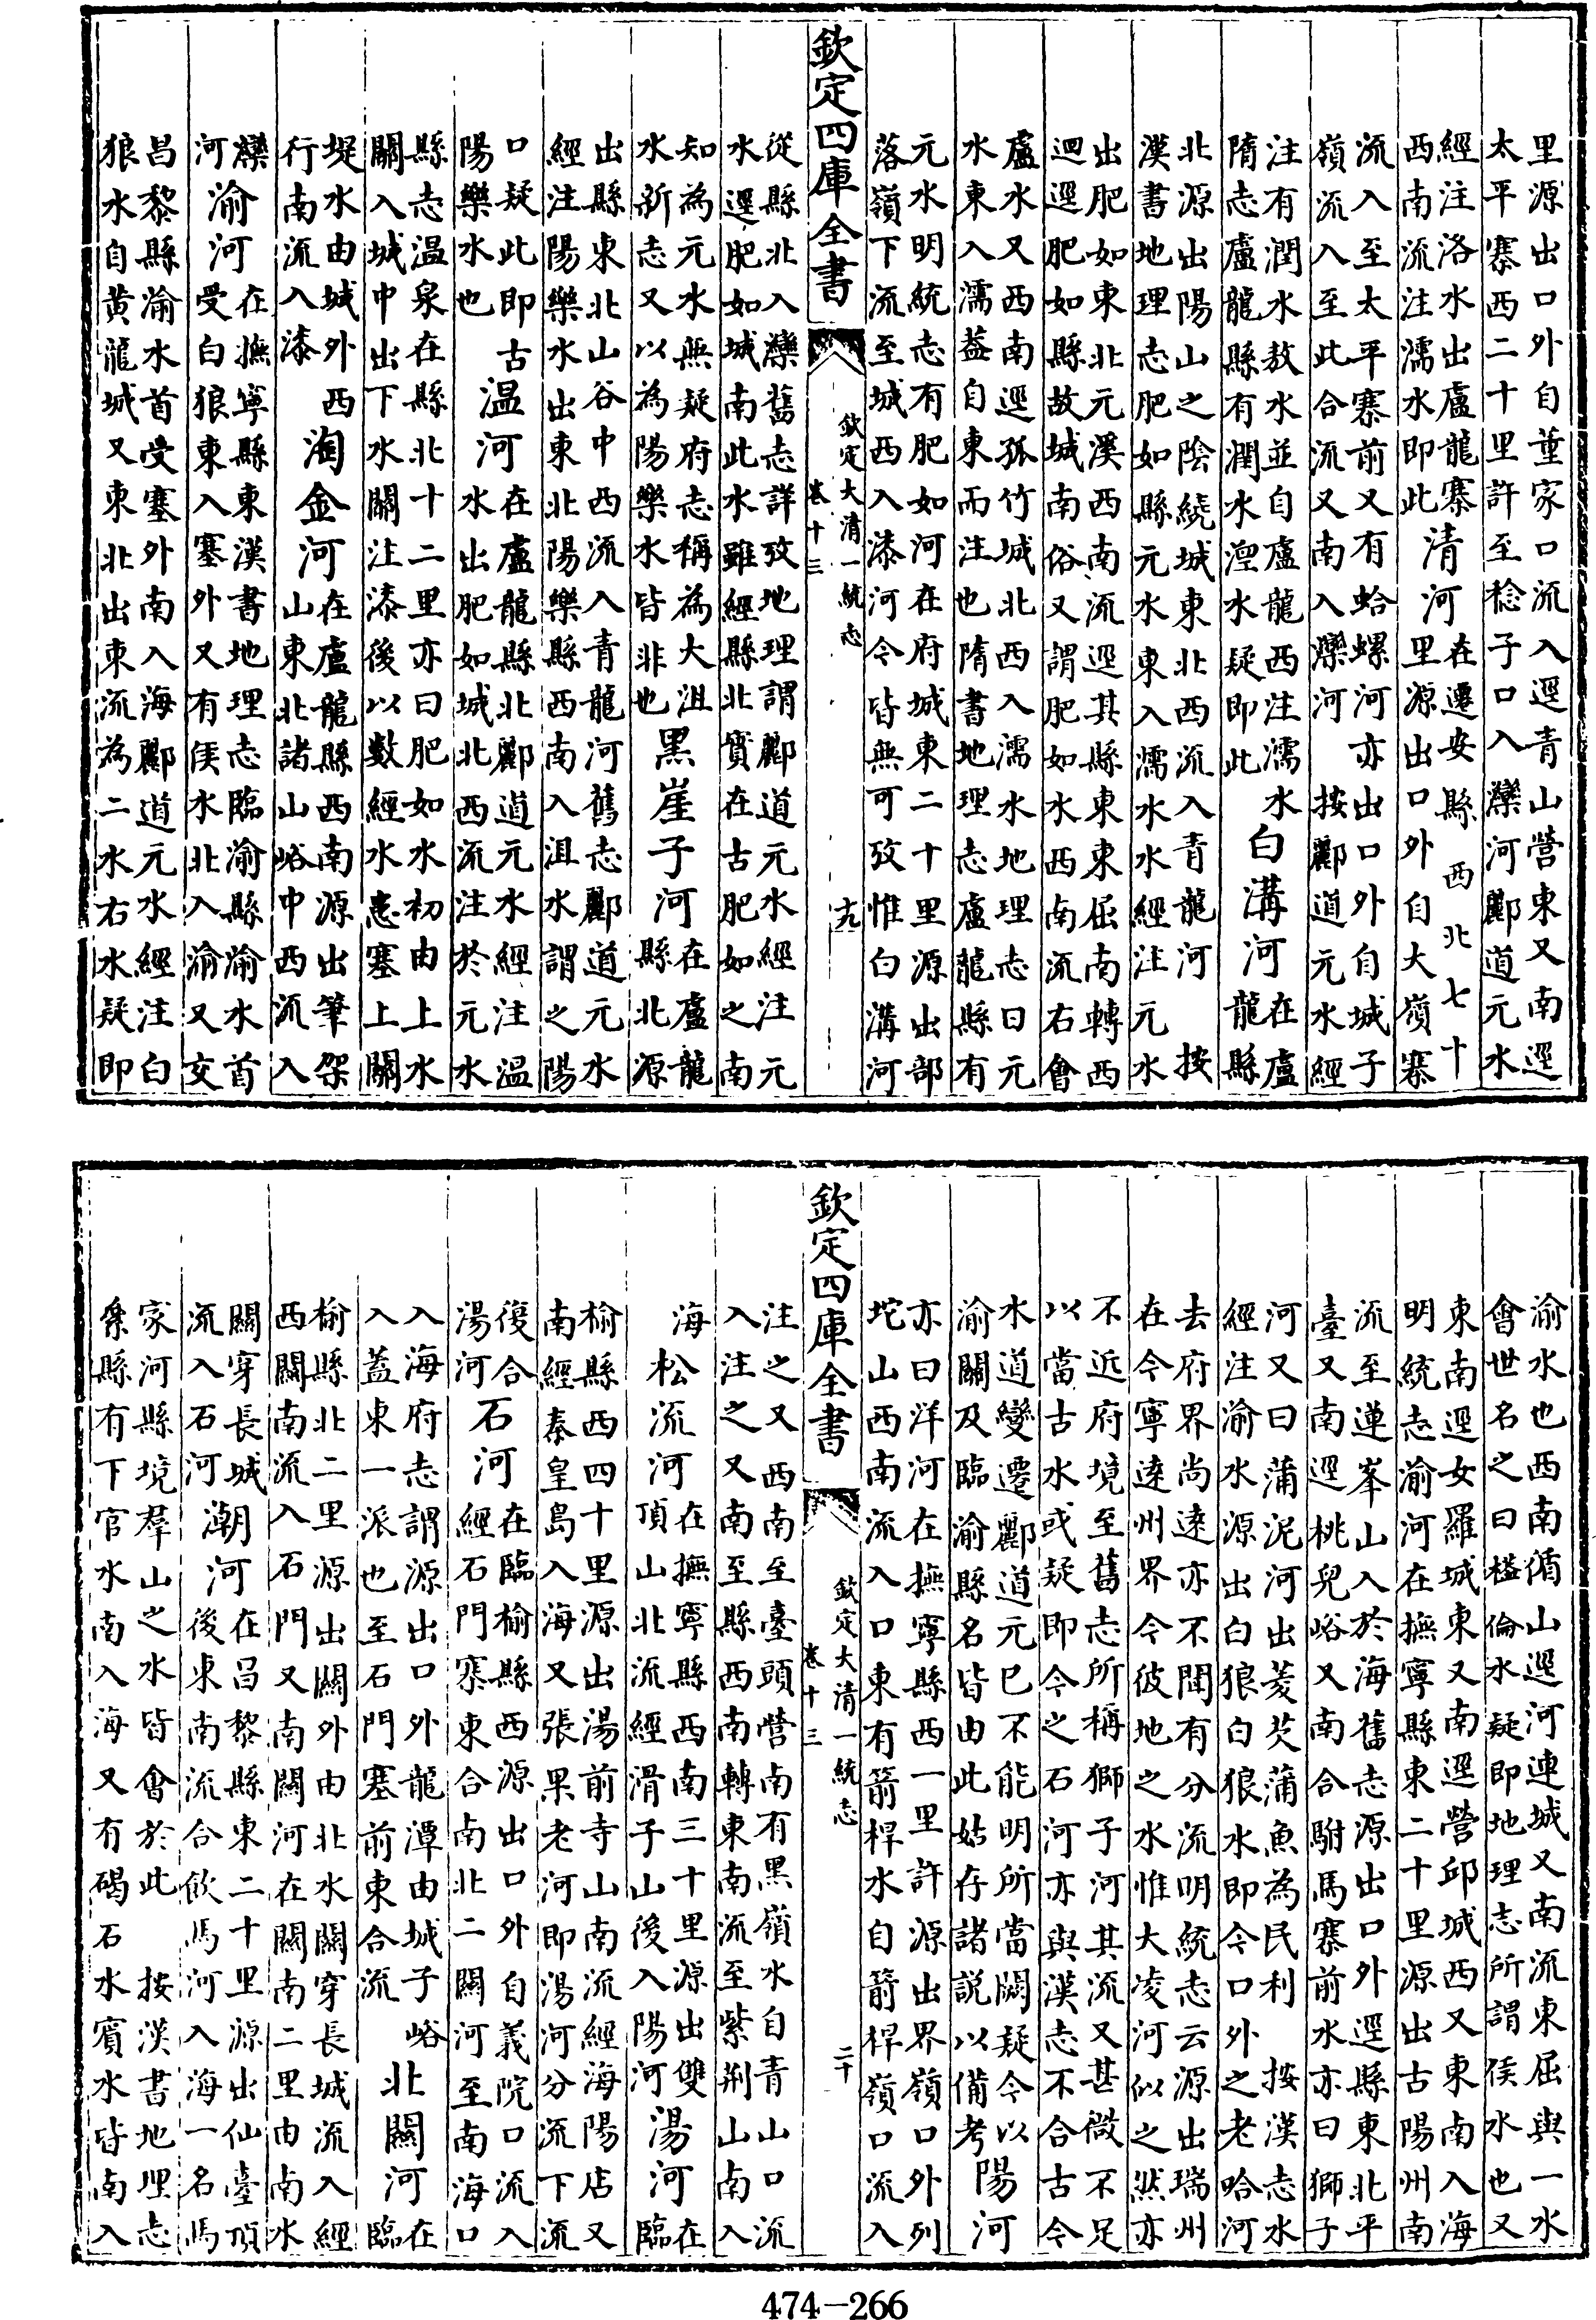 里源出口外自董家口流入逕青山營東又南逕
太平寨西二十里許至稔子口入灤河酈道元水
經注洛水出盧龍寨
西南流注濡水即此
清河
在遷安縣西北七十
里源出口外自大嶺寨
流入至太平寨前又有蛤螺河亦出口外自城子
嶺流入至此合流又南入灤河 按酈道元水經
注有潤水敖水並自盧龍西注濡水
隋志盧龍縣有潤水湼水疑即此
白溝河
在盧
龍縣
北源出陽山之陰繞城東北西流入青龍河 按
漢書地理志肥如縣元水東入濡水水經注元水
出肥如東北元溪西南流逕其縣東東屈南轉西
迴逕肥如縣故城南俗又謂肥如水西南流右會
盧水又西南逕孤竹城北西入濡水地理志曰元
水東入濡葢自東而注也隋書地理志盧龍縣有
元水明統志有肥如河在府城東二十里源出部
落嶺下流至城西入漆河今皆無可攷惟白溝河
欽定四庫全書
欽定大清一統志
卷十三
十九
從縣北入灤舊志詳攷地理謂酈道元水經注元
水逕肥如城南此水雖經縣北實在古肥如之南
知為元水無疑府志稱為大沮
水新志又以為陽樂水皆非也
黑崖子河
在盧龍
縣北源
出縣東北山谷中西流入青龍河舊志酈道元水
經注陽樂水出東北陽樂縣西南入沮水謂之陽
口疑此即古
陽樂水也
温河
在盧龍縣北酈道元水經注温
水出肥如城北西流注於元水
縣志温泉在縣北十二里亦曰肥如水初由上水
關入城中出下水關注漆後以數經水患塞上關
堤水由城外西
行南流入漆
淘金河
在盧龍縣西南源出筆架
山東北諸山峪中西流入
灤
河
渝河
在撫寧縣東漢書地理志臨渝縣渝水首
受白狼東入塞外又有侯水北入渝又交
昌黎縣渝水首受塞外南入海酈道元水經注白
狼水自黃龍城又東北出東流為二水右水疑即
渝水也西南循山逕河連城又南流東屈與一水
會世名之曰榼倫水疑即地理志所謂侯水也又
東南逕女羅城東又南逕營邱城西又東南入海
明統志渝河在撫寧縣東二十里源出古陽州南
流至蓮峯山入於海舊志源出口外逕縣東北平
臺又南逕桃兒峪又南合駙馬寨前水亦曰獅子
河又曰蒲泥河出菱芡蒲魚為民利 按漢志水
經注渝水源出白狼白狼水即今口外之老哈河
去府界尚逺亦不聞有分流明統志云源出瑞州
在今寧逺州界今彼地之水惟大凌河似之然亦
不近府境至舊志所稱獅子河其流又甚微不足
以當古水或疑即今之石河亦與漢志不合古今
水道變遷酈道元已不能明所當闕疑今以
渝關及臨渝縣名皆由此姑存諸説以備考
陽河
亦曰洋河在撫寧縣西一里許源出界嶺口外列
坨山西南流入口東有箭桿水自箭桿嶺口流入
注之又西南至臺頭營南有黑嶺水自青山口流
入注之又南至縣西南轉東南流至紫荆山南入
海
松流河
在撫寧縣西南三十里源出雙
頂山北流經滑子山後入陽河
湯河
在
臨
榆縣西四十里源出湯前寺山南流經海陽店又
南經秦皇島入海又張果老河即湯河分流下流
復合
湯河
石河
在臨榆縣西源出口外自義院口流入
經石門寨東合南北二關河至南海口
入海府志謂源出口外龍潭由城子峪
入蓋東一派也至石門塞前東合流
北關河
在
臨
榆縣北二里源出關外由北水關穿長城流入經
西關南流入石門又南關河在關南二里由南水
關穿長城
流入石河
潮河
在昌黎縣東二十里源出仙臺頂
後東南流合飲馬河入海一名馬
家河縣境羣山之水皆會於此 按漢書地理志
絫縣有下官水南入海又有碣石水賔水皆南入
欽定四庫全書
欽定大清一統志
卷十三
二十
474-266